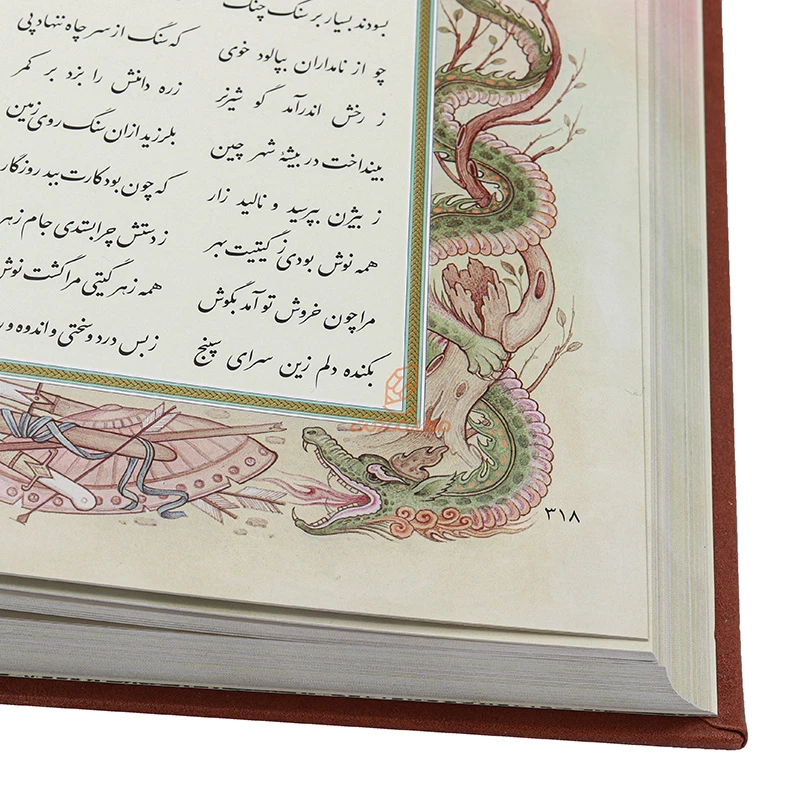 بسودند بسیار بر سنگ چنگ
چو از نامداران بپالود خوی که سنگ از سر چاه ننهاد پی
ز رخش اندرآمد گو شیرنر زره دامنش را بزد بر کمر
بینداخت در بیشهٔ شهر چین بلرزید ازان سنگ روی زمین
ز بیژن بپرسید و نالید زار که چون بود کارت ببد روزگار
همه نوش بودی ز گیتیت بهر ز دستش چرا بستدی جام زهر
مرا چون خروش تو آمد بگوش همه زهر گیتی مرا گشت نوش
بکنده دلم زین سرای سپنج ز بس درد و سختی و اندوه و
۳۱۸